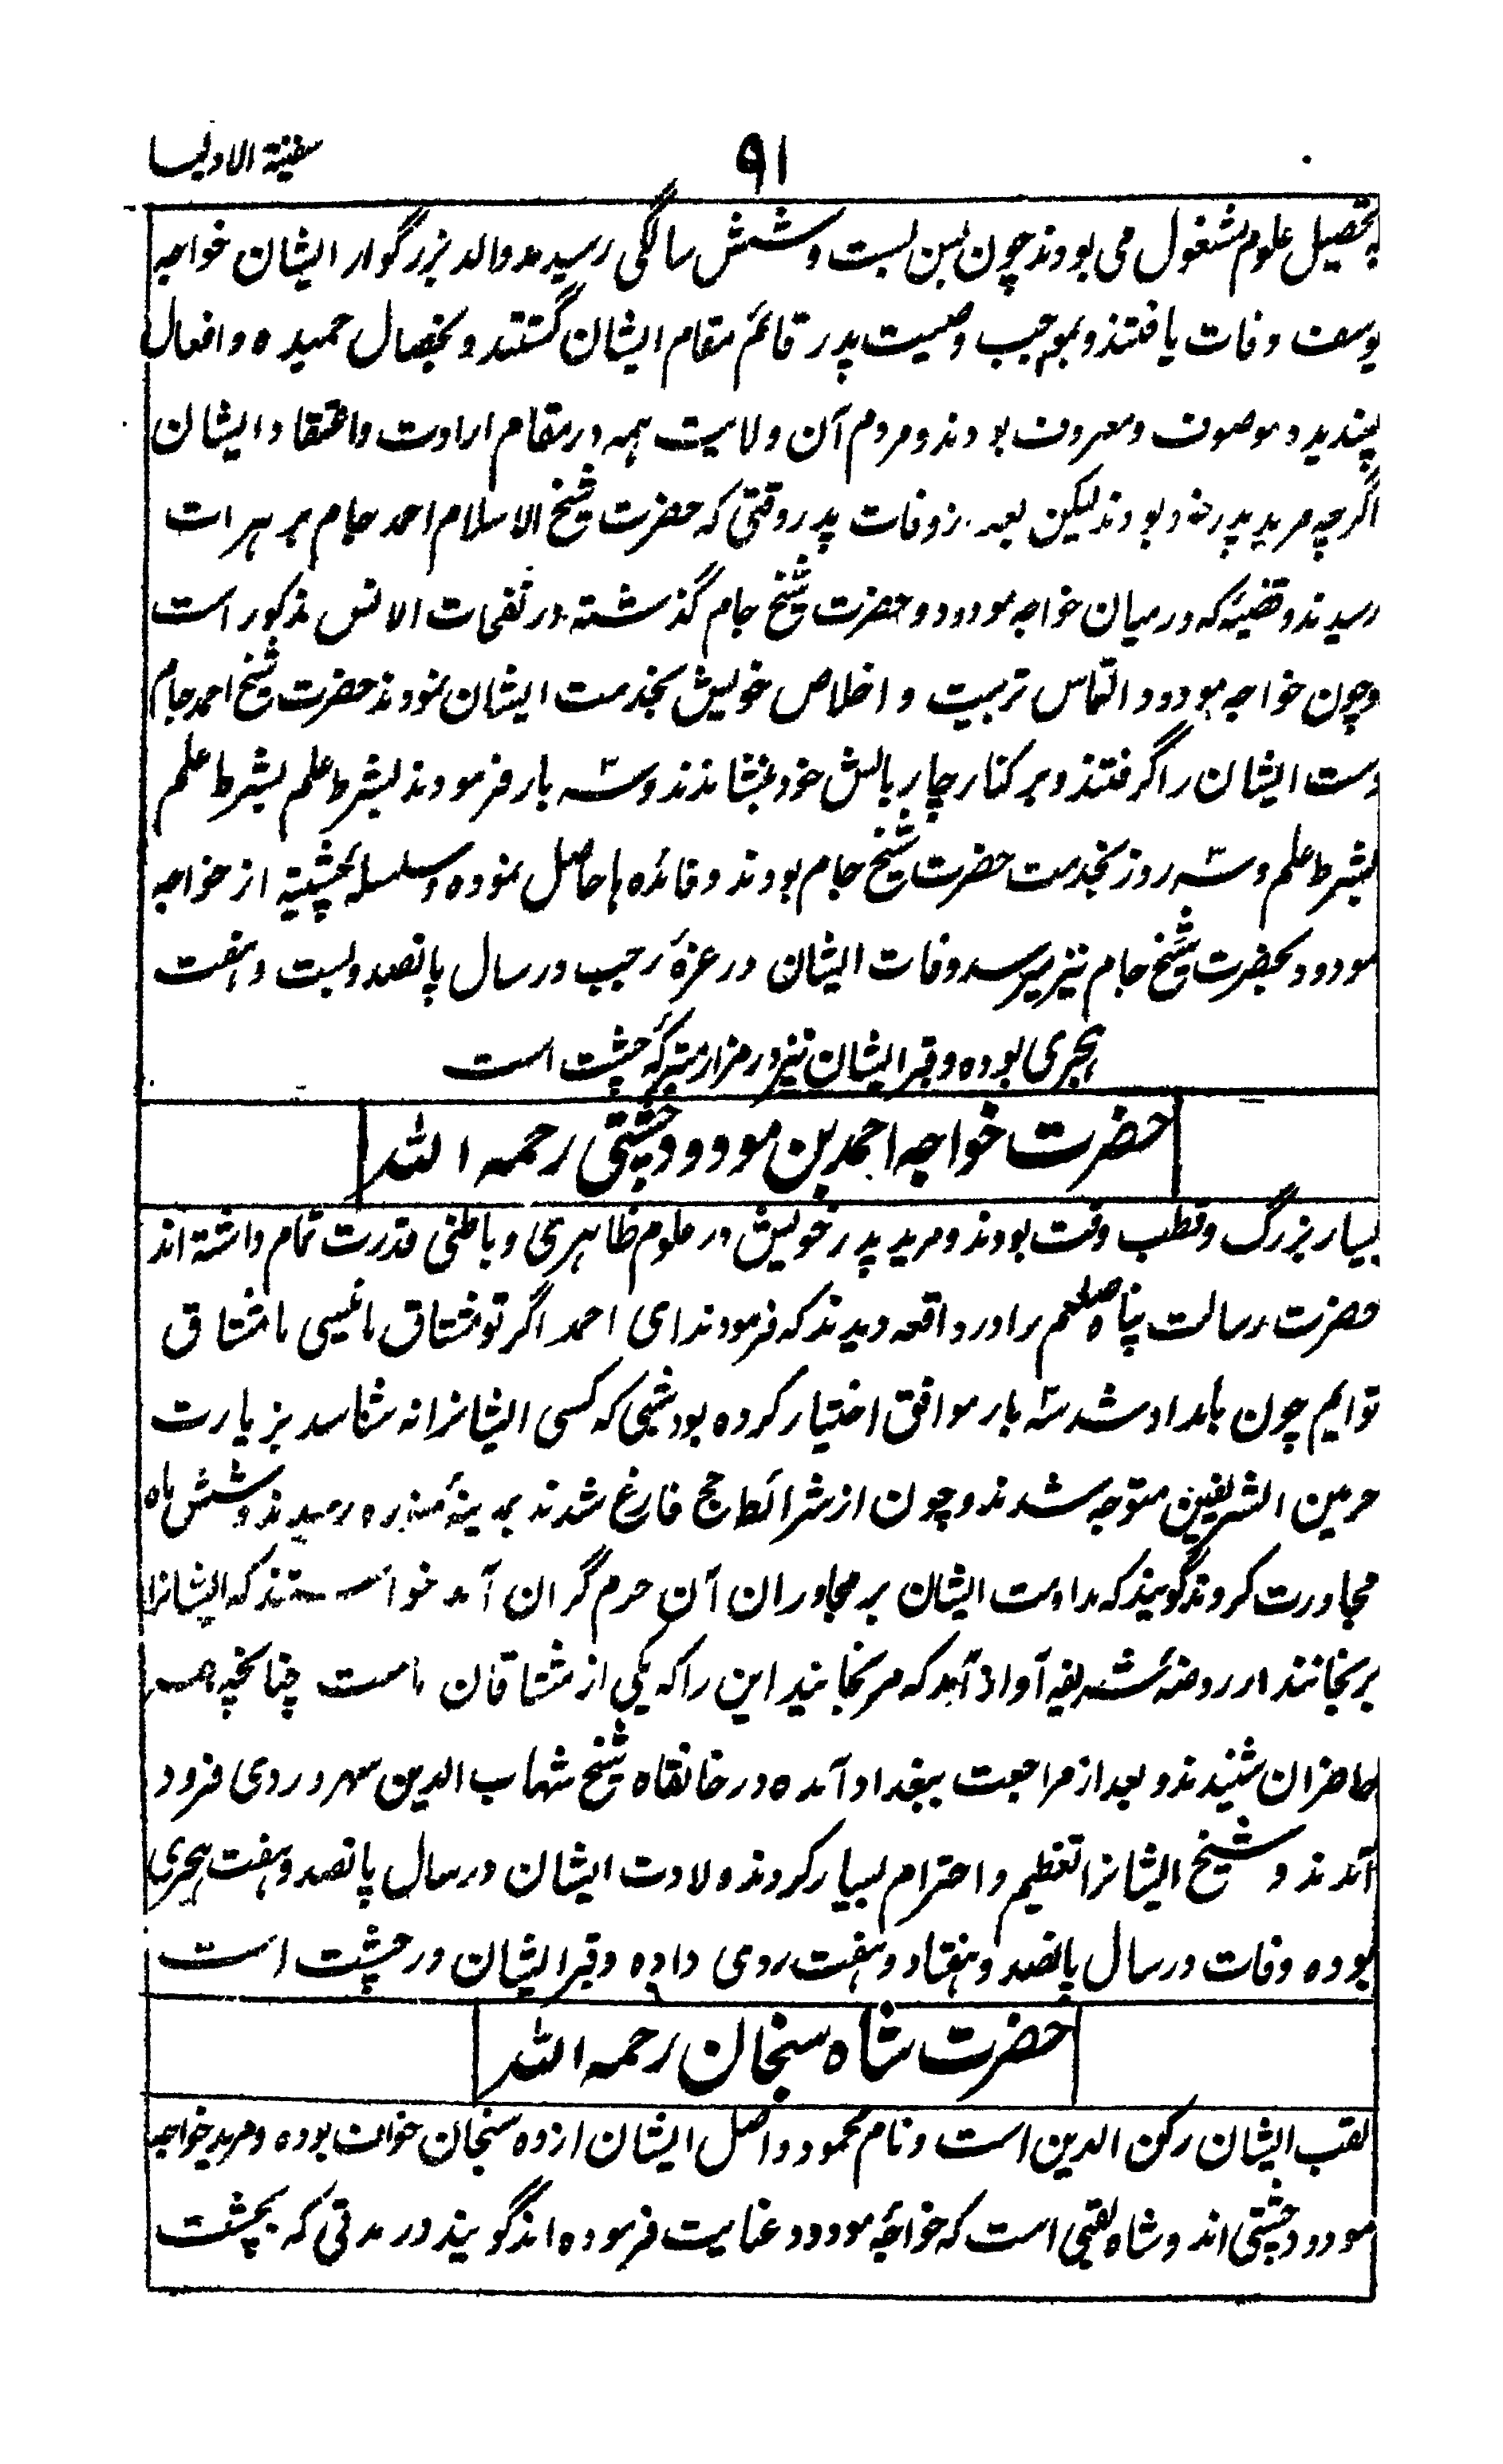 سفینة الاولیا
۹۱
بتحصیل علوم مشغول می بودند چون بسن بست و شش سالگی رسیدند والد بزرگوار ایشان خواجه
یوسف وفات یافتند و بموجب وصیت پدر قائم مقام ایشان گشتند و بخصال حمیده و افعال
پسندیده موصوف و معروف بودند و مردم آن ولایت همه در مقام ارادت و اعتقاد ایشان
اگرچه مرید پدر خود بودند لیکن بعد از وفات پدر وقتی که حضرت شیخ الاسلام احمد جام بر هرات
رسیدند و قضیه که در میان خواجه مودود و حضرت شیخ جام گذشته در نفحات الانس مذکور است
و چون خواجه مودود التماس تربیت و اخلاص خویش بخدمت ایشان نمودند حضرت شیخ احمد جام
دست ایشان را گرفتند و بر کنار چار بالش خود بنشاندند و سه بار فرمودند بشرط علم بشرط علم
بشرط علم و سه روز بخدمت حضرت شیخ جام بودند و فائده ها حاصل نموده و سلسلهٔ چشتیه از خواجه
مودود بحضرت شیخ جام نیز میرسد وفات ایشان در غرهٔ رجب در سال پانصد و بست و هفت
هجری بوده و قبر ایشان نیز در مزار متبرکه چشت است
حضرت خواجه احمد بن مودود چشتی رحمه الله
بسیار بزرگ و قطب وقت بودند و مرید پدر خویش در علوم ظاهری و باطنی قدرت تمام داشته اند
حضرت رسالت پناه صلعم را در واقعه دیدند که فرمودند ای احمد اگر تو مشتاق ما نیسی ما مشتاق
تو ایم چون بامداد شد سه یار موافق اختیار کرده بود شبی که کسی ایشانرا نه شناسد بزیارت
حرمین الشریفین متوجه شدند و چون از شرائط حج فارغ شدند بمدینهٔ منوره رسیدند و شش ماه
مجاورت کردند گویند که مداومت ایشان بر مجاوران آن حرم گران آمد خواستند که ایشانرا
برنجانند از روضهٔ شریفه آواز آمد که مرنجانید این را که یکی از مشتاقان ماست چنانچه همه
حاضران شنیدند و بعد از مراجعت ببغداد آمده در خانقاه شیخ شهاب الدین سهروردی فرود
آمدند و شیخ ایشانرا تعظیم و احترام بسیار کردند ولادت ایشان در سال پانصد و هفت هجری
بوده وفات در سال پانصد و هفتاد و هفت روی داده و قبر ایشان در چشت است
حضرت شاه سنجان رحمه الله
لقب ایشان رکن الدین است و نام محمود و اصل ایشان از ده سنجان خواف بوده و مرید خواجه
مودود چشتی اند و شاه لقبی است که خواجهٔ مودود عنایت فرموده اند گویند در مدتی که بچشت